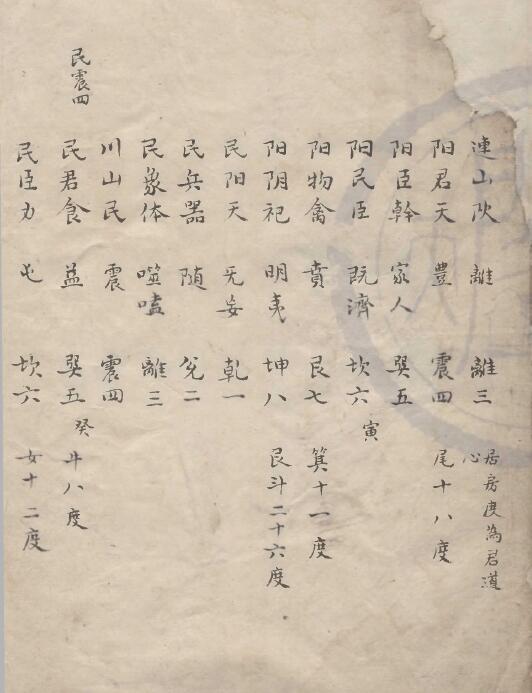 連山欤 離 離三 居房度為君道
心
阳君天 豊 震四 尾十八度
阳臣幹 家人 巽五
阳民臣 既濟 坎六 寅
阳物禽 賁 艮七 箕十一度
阳阴祀 明夷 坤八 艮斗二十六度
民阳天 旡妄 乾一
民兵器 随 兌二
民象体 噬嗑 離三
川山民 震 震四
民君食 益 巽五 癸 牛八度
民震四
民臣力 屯 坎六 女十二度